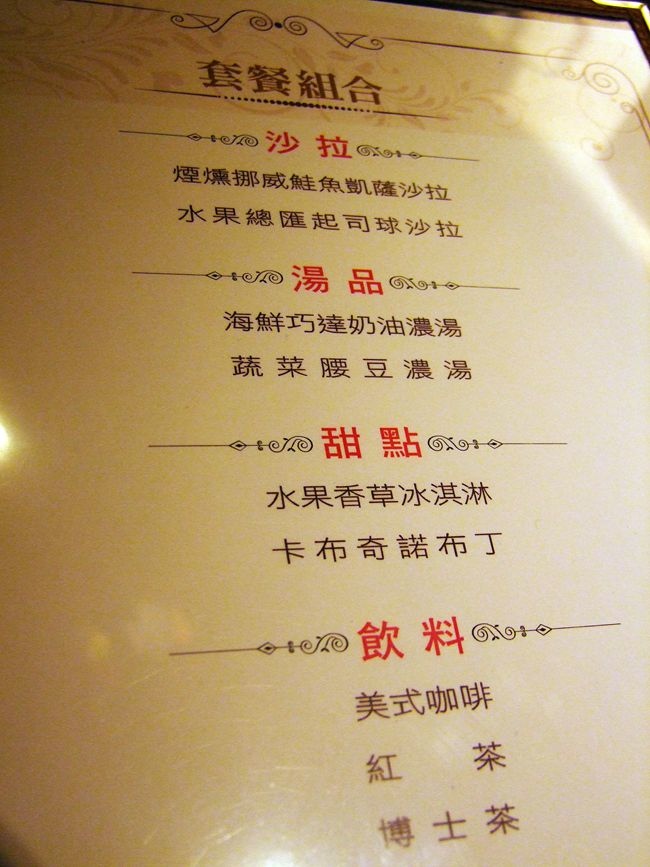 套餐組合
沙拉
煙燻挪威鮭魚凱薩沙拉
水果總匯起司球沙拉
湯品
海鮮巧達奶油濃湯
蔬菜腰豆濃湯
甜點
水果香草冰淇淋
卡布奇諾布丁
飲料
美式咖啡
紅茶
博士茶